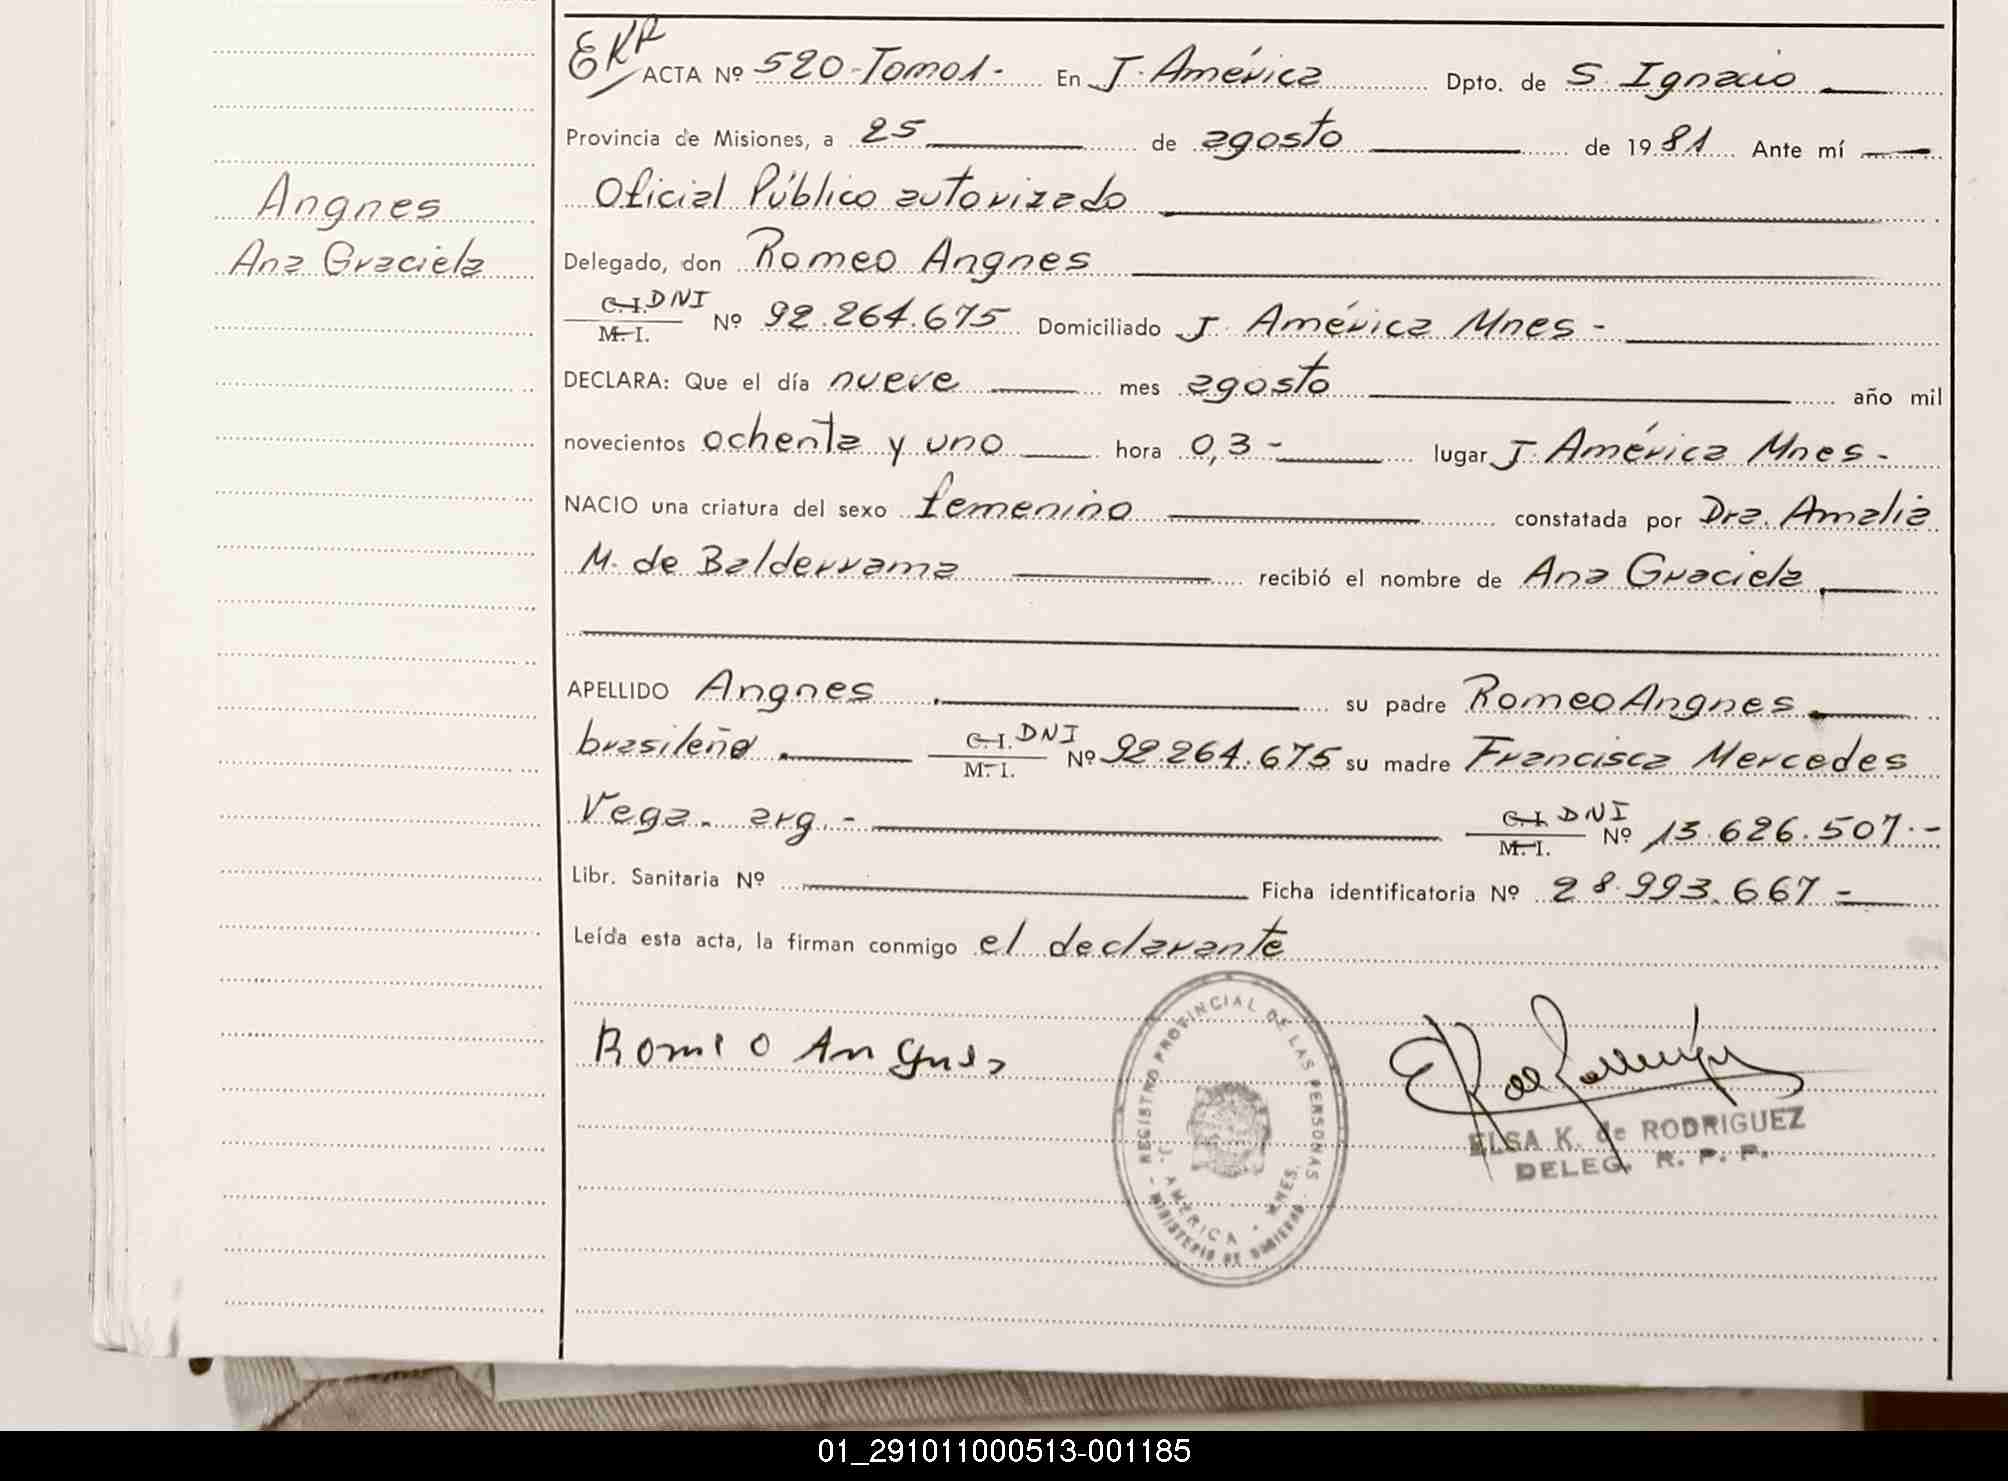 EKR
ACTA Nº 520-Tomo1- En J. América Dpto. de S. Ignacio
Provincia de Misiones, a 25 de agosto de 1981 Ante mí
Oficial Público autorizado
Angnes
Ana Graciela
Delegado, don Romeo Angnes
C.I. DNI
M.I. Nº 92.264.675 Domiciliado J. América Mnes-
DECLARA: Que el día nueve mes agosto año mil
novecientos ochenta y uno hora 0,3- lugar J. América Mnes-
NACIO una criatura del sexo femenino constatada por Dra. Amalia
M. de Balderrama recibió el nombre de Ana Graciela
APELLIDO Angnes su padre Romeo Angnes
brasileño C.I. DNI M.I. Nº 92.264.675 su madre Francisca Mercedes
Vega. arg.- C.I. DNI M.I. Nº 13.626.507.-
Libr. Sanitaria Nº Ficha identificatoria Nº 28.993.667-
Leída esta acta, la firman conmigo el declarante
Romeo Angnes
REGISTRO PROVINCIAL DE LAS PERSONAS
J. AMERICA - MNES.
- MINISTERIO DE GOBIERNO -
ELSA K. de RODRIGUEZ
DELEG. R. P. P.
01_291011000513-001185